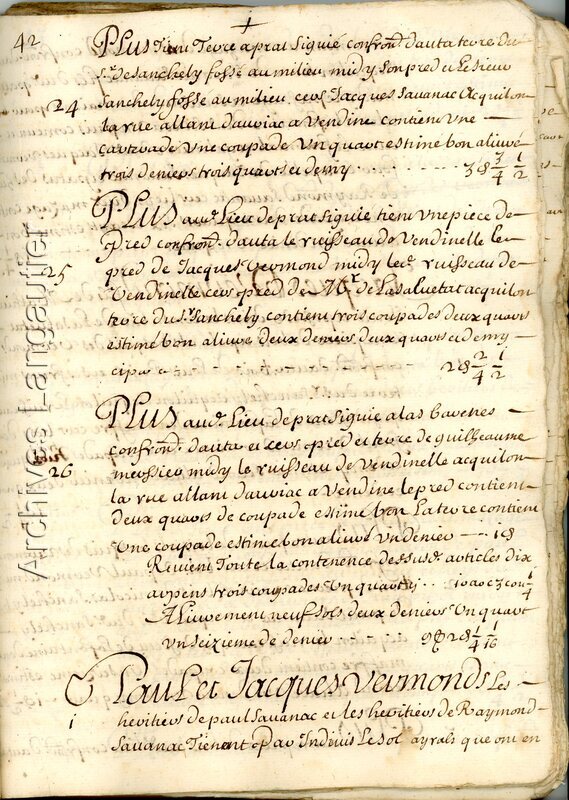 42
PLUS Tient Terre a prat Siguié confrond. d'auta terre du
Sr. de Sanchely fossé au milieu, midy son pred et le Sieur
24 Sanchely fosse au milieu, cers Jacques Savanac Acquilon
la rue allant d'auriac a Vendine contient Une
carterade Une coupade Un quart estimé bon aliuré
trois deniers trois quarts et demy 3 d 3/4 1/2
PLUS aud. Lieu de prat Siguie tient Une piece de
Pred confrond. d'auta le ruisseau de Vendinelle le
25 pred de Jacques Vermond midy led. ruisseau de
Vendinelle cers pred de Mr. de Lasaluetat acquilon
terre du Sr. Sanchely contient trois coupades deux quarts
estimé bon aliuré deux deniers deux quarts et demy
cy 2 d 2/4 1/2
PLUS aud. Lieu de prat Siguie a las
confrond. d'auta et cers pred et terre de guilheaume
26 midy le ruisseau de Vendinelle acquilon
la rue allant d'auriac a Vendine le pred contient
deux quarts de coupade estimé bon La terre contient
Une coupade estimé bon aliuré Un denier 1 d
Revient Toute la contenence dessusd. articles dix
arpens trois coupades Un quart 10 a 0 c 3 cou 1/4
Aliurement neuf sols deux deniers Un quart
Un Seizieme de denier 9 s 2 d 1/4 1/16
Paul et Jacques Vermonds Les
1 heritiers de paul Savanac et les heritiers de Raymond
Savanac Tienent Par Indiuis Le Sol ayrals que ont en
Archives Langautier